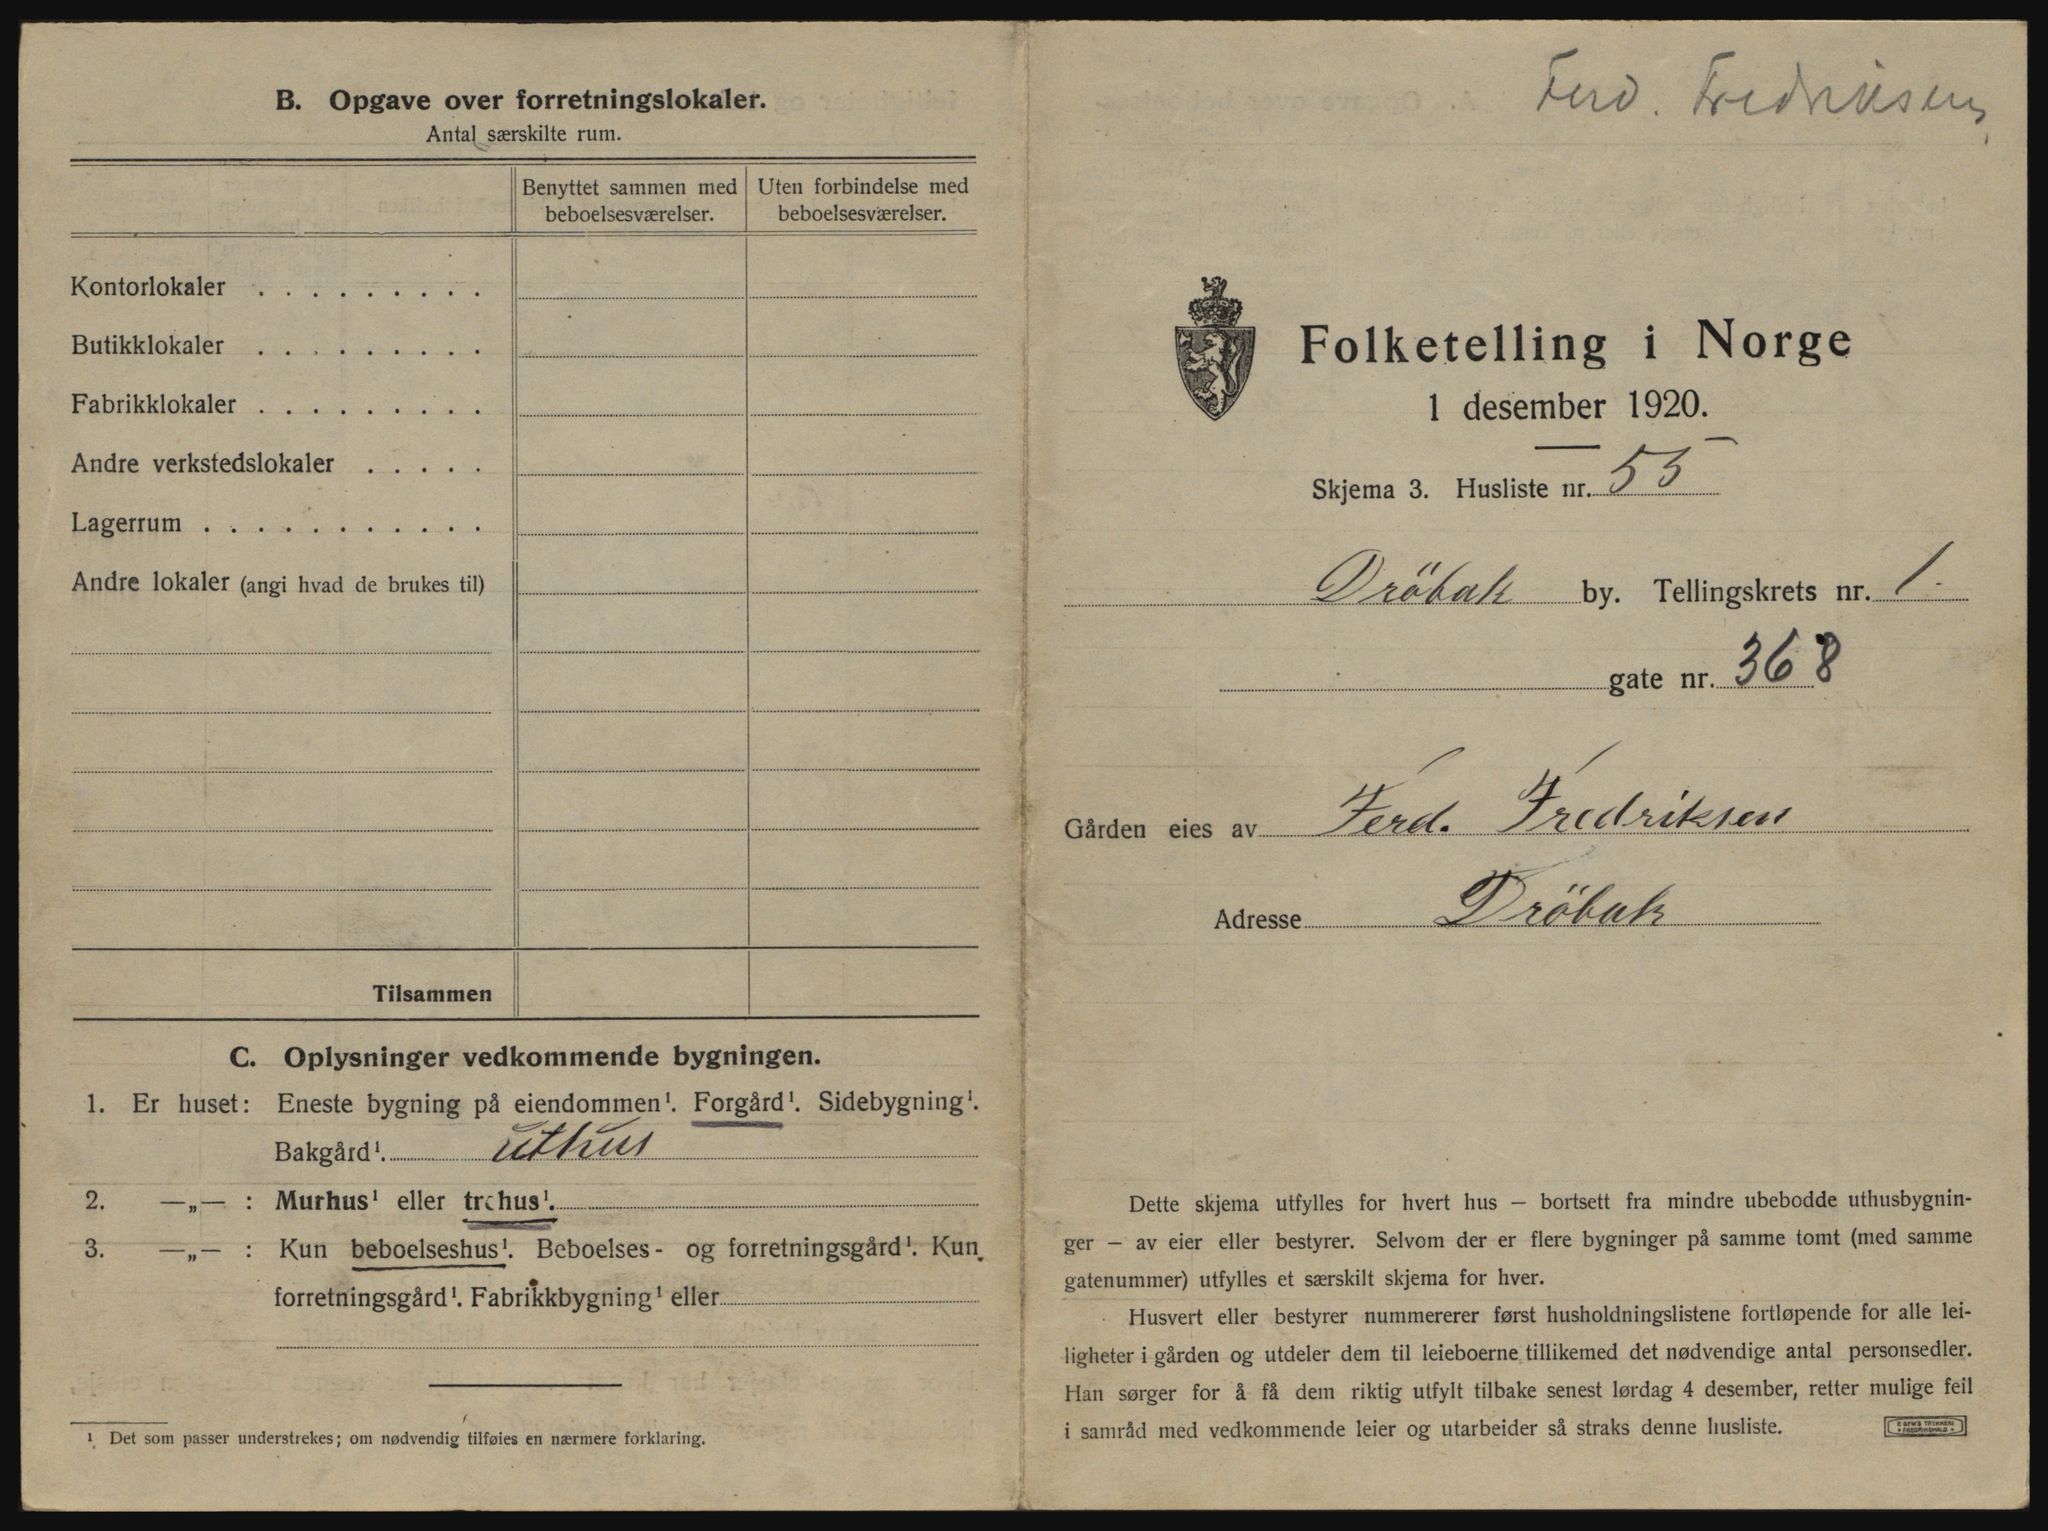 B. Opgave over forretningslokaler.
Antal særskilte rum.
Benyttet sammen med beboelsesværelser.
Uten forbindelse med beboelsesværelser.
Kontorlokaler . . . . . . . . .
Butikklokaler . . . . . . . . .
Fabrikklokaler . . . . . . . . .
Andre verkstedslokaler . . . . .
Lagerrum . . . . . . . . . . .
Andre lokaler (angi hvad de brukes til)
Tilsammen
C. Oplysninger vedkommende bygningen.
1. Er huset: Eneste bygning på eiendommen¹. Forgård¹. Sidebygning¹.
Bakgård¹. uthus
2. —„— : Murhus¹ eller trehus¹.
3. —„— : Kun beboelseshus¹. Beboelses- og forretningsgård¹. Kun
forretningsgård¹. Fabrikkbygning¹ eller
¹ Det som passer understrekes; om nødvendig tilføies en nærmere forklaring.
Ferd. Fredriksen
Folketelling i Norge
1 desember 1920.
Skjema 3. Husliste nr. 55
Dröbak by. Tellingskrets nr. 1.
gate nr. 368
Gården eies av Ferd. Fredriksen
Adresse Dröbak
Dette skjema utfylles for hvert hus — bortsett fra mindre ubebodde uthusbygnin-
ger — av eier eller bestyrer. Selvom der er flere bygninger på samme tomt (med samme
gatenummer) utfylles et særskilt skjema for hver.
Husvert eller bestyrer nummererer først husholdningslistene fortløpende for alle lei-
ligheter i gården og utdeler dem til leieboerne tillikemed det nødvendige antal personsedler.
Han sørger for å få dem riktig utfylt tilbake senest lørdag 4 desember, retter mulige feil
i samråd med vedkommende leier og utarbeider så straks denne husliste.